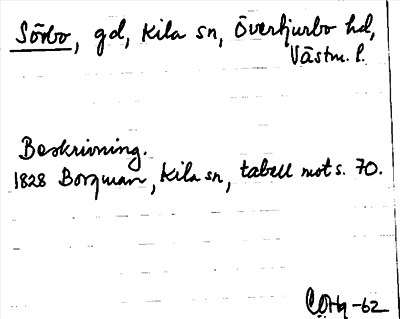 Sörbo, gd, Kila sn, Övertjurbo hd,
Västm. l.
Beskrivning.
1828 Borgman, Kila sn, tabell mot s. 70.
-62